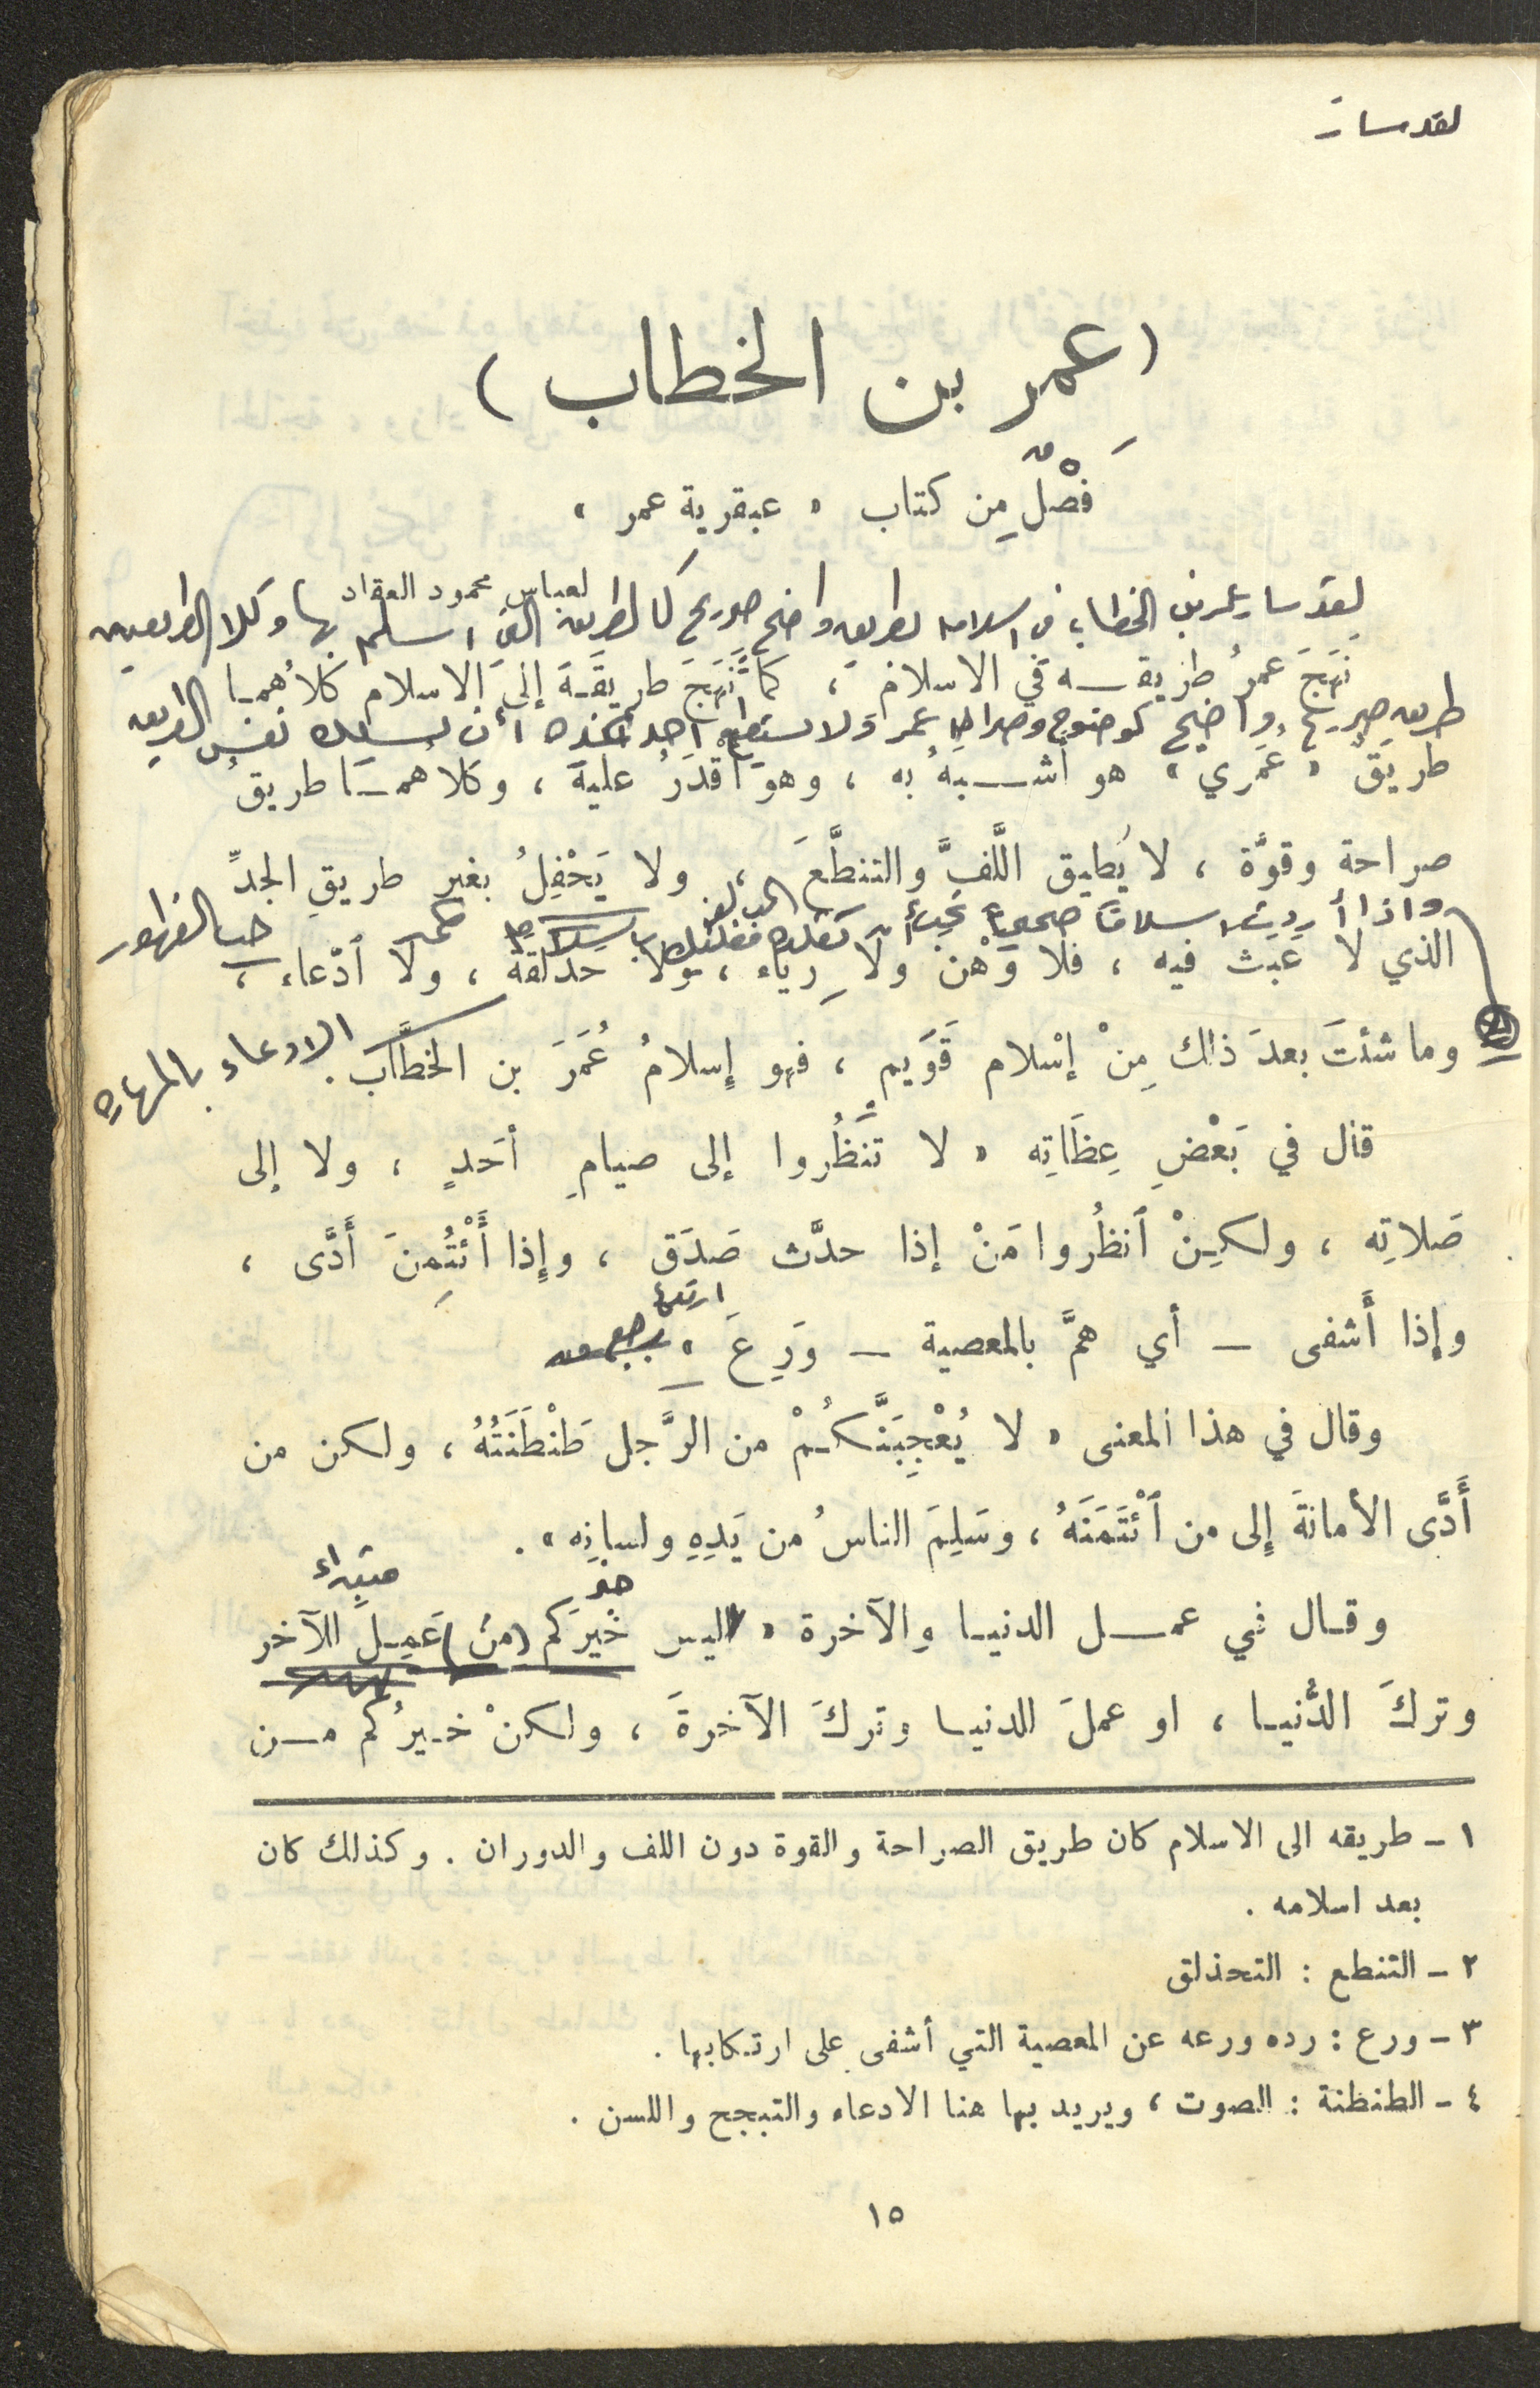 لقد سار
(عمر بن الخطاب)
فَصْلٌ مِن كتاب « عبقرية عمر »
لعباس محمود العقاد
لقد سار عمر بن الخطاب في اسلامه بطريق واضح صريح كالطريق التي اسلم بها وكلا الطريقين
نَهَجَ عمرُ طريقه في الاسلام ، كما نَهَجَ طريقَه إلى الاسلام كلاهما
طريق صريح واضح كوضوح وصراحة عمر ولا يستطيع احد أن يسلك نفس الطريق
طريقٌ « عُمَري » هو أشبهُ به ، وهو أقدَرُ عليه ، وكلاهما طريقُ
صراحة وقوَّة ، لا يُطيق اللَّفَّ والتنطَّعَ ، ولا يَحْفِلُ بغير طريقِ الجدِّ
واذا أردت اسلاماً صحيحاً
حب الظهور
الذي لا عَبث فيه ، فلا وَهْن ولا رِياء ، ولا حذلقة ، ولا ٱدّعاء ،
وما شئتَ بعدَ ذلك مِنْ إسْلام قَوَيم ، فهو إسلامُ عُمَرَ بن الخطَّاب .
الادعاء بالمهارة
قال في بَعْضِ عِظَاتِه « لا تَنظُروا إلى صيامِ أحَدٍ ، ولا إلى
صَلاتِه ، ولكِنْ ٱنظُروا مَنْ إذا حدَّث صَدَق ، وإذا أُئْتُمِنَ أَدَّى ،
وإذا أَشفى — أي همَّ بالمعصية — وَرِعَ » .
وقال في هذا المعنى « لا يُعْجِبَنَّكُمْ من الرَّجل طَنْطَنَتُهُ ، ولكن من
أَدَّى الأمانةَ إلى من ٱئْتَمَنَهُ ، وسَلِمَ الناسُ من يَدِهِ ولسانِه » .
وقال في عمل الدنيا والآخرة « ليس خَيرَكم (من) عَمِلَ للآخر
وتركَ الدُّنيا ، او عملَ للدنيا وتركَ الآخرةَ ، ولكنْ خيرُكم من
١ ـ طريقه الى الاسلام كان طريق الصراحة والقوة دون اللف والدوران . وكذلك كان
بعد اسلامه .
٢ ـ التنطع : التحذلق
٣ ـ ورع : رده ورعه عن المعصية التي أشفى على ارتكابها .
٤ ـ الطنطنة : الصوت ، ويريد بها هنا الادعاء والتبجح واللسن .
١٥